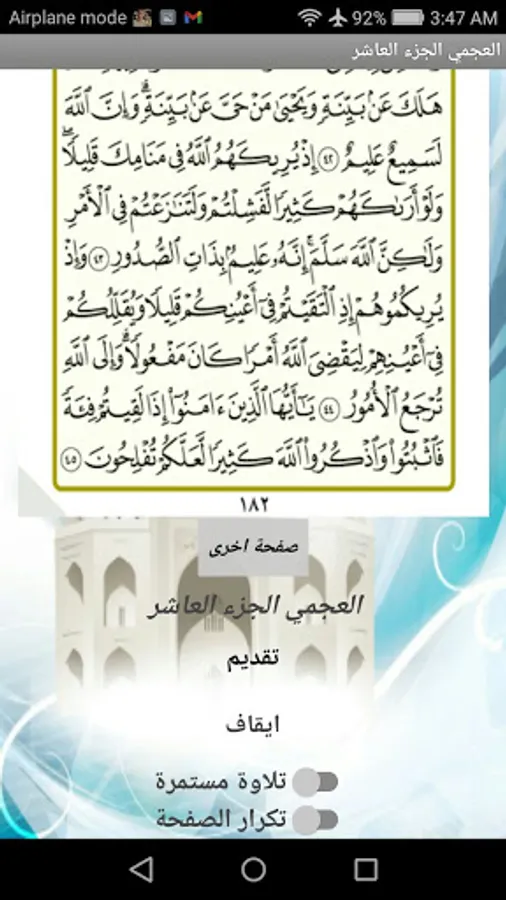 Airplane mode 92% 3:47 AM
العجمي الجزء العاشر
هَلَكَ عَنۢ بَيِّنَةٍ وَيَحْيَىٰ مَنْ حَىَّ عَنۢ بَيِّنَةٍ ۗ وَإِنَّ ٱللَّهَ
لَسَمِيعٌ عَلِيمٌ ٤٢ إِذْ يُرِيكَهُمُ ٱللَّهُ فِى مَنَامِكَ قَلِيلًا ۖ
وَلَوْ أَرَىٰكَهُمْ كَثِيرًا لَّفَشِلْتُمْ وَلَتَنَٰزَعْتُمْ فِى ٱلْأَمْرِ
وَلَٰكِنَّ ٱللَّهَ سَلَّمَ ۗ إِنَّهُۥ عَلِيمٌۢ بِذَاتِ ٱلصُّدُورِ ٤٣ وَإِذْ
يُرِيكُمُوهُمْ إِذِ ٱلْتَقَيْتُمْ فِىٓ أَعْيُنِكُمْ قَلِيلًا وَيُقَلِّلُكُمْ
فِىٓ أَعْيُنِهِمْ لِيَقْضِىَ ٱللَّهُ أَمْرًا كَانَ مَفْعُولًا ۗ وَإِلَى ٱللَّهِ
تُرْجَعُ ٱلْأُمُورُ ٤٤ يَٰٓأَيُّهَا ٱلَّذِينَ ءَامَنُوٓا۟ إِذَا لَقِيتُمْ فِئَةً
فَٱثْبُتُوا۟ وَٱذْكُرُوا۟ ٱللَّهَ كَثِيرًا لَّعَلَّكُمْ تُفْلِحُونَ ٤٥
١٨٢
صفحة اخرى
العجمي الجزء العاشر
تقديم
ايقاف
تلاوة مستمرة
تكرار الصفحة